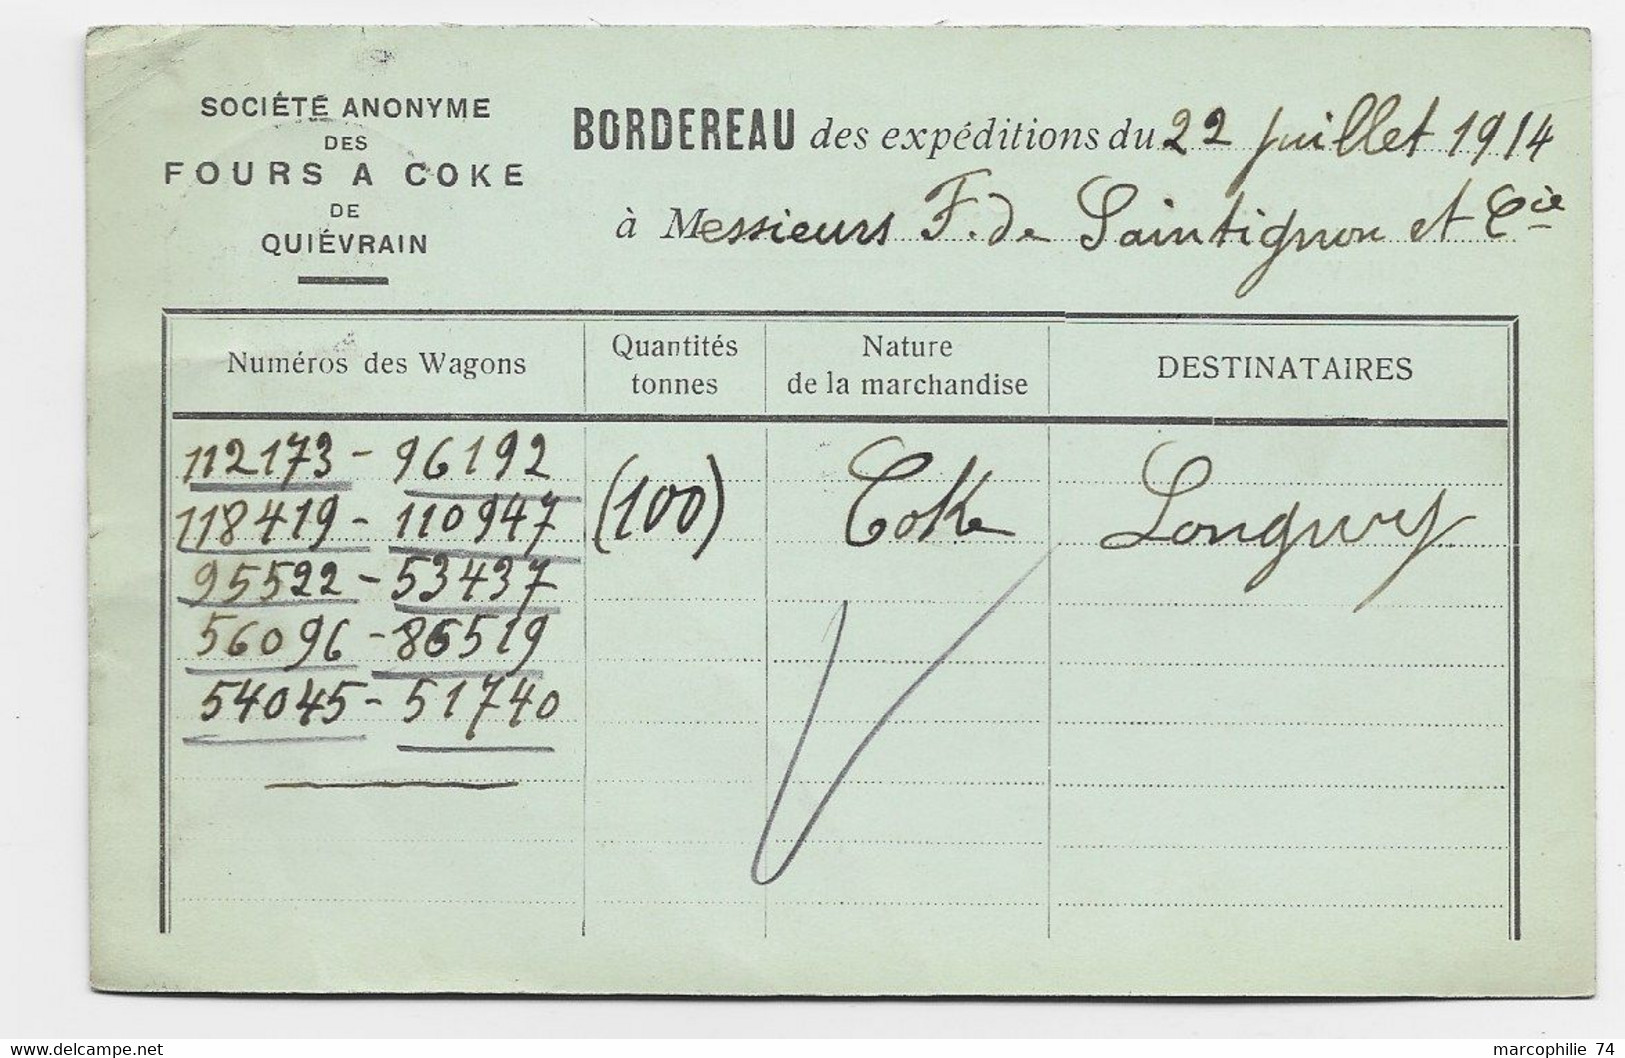 SOCIÉTÉ ANONYME
DES
FOURS A COKE
DE
QUIÉVRAIN
BORDEREAU des expéditions du 22 juillet 1914
à Messieurs F. de Saintignon et Cie
Numéros des Wagons
Quantités
tonnes
Nature
de la marchandise
DESTINATAIRES
112173 - 96192
118419 - 110947
95522 - 53437
56096 - 86519
54045 - 51740
(100)
Coke
Longwy
marcophilie 74